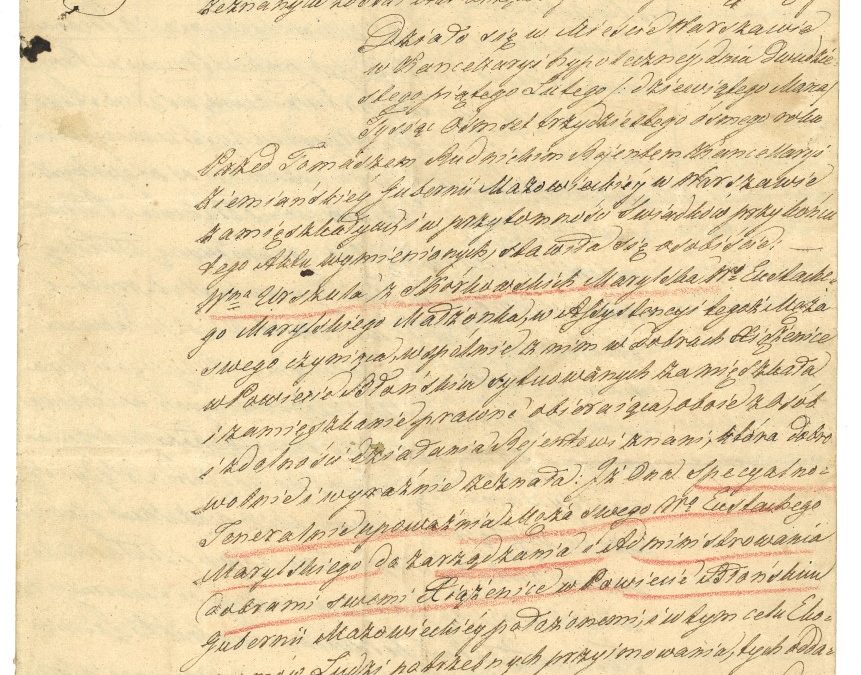 Działo się w Mieście Warszawie
w Kancellaryi hypoteczney, dnia Dwudzie-
stego piątego Lutego /: dziewiątego Marca/
Tysiąc Ośmset trzydziestego ósmego roku
Przed Tomaszem Rudnickim Rejentem Kancellaryi
Ziemiańskiéy Gubernii Mazowieckiéy w Warszawie
zamięszkałym, i w przytomności świadków przy końcu
tego Aktu wymienionych, stawiła się osobiście: —
Wna Urszula z Skórkowskich Marylska Wo Eustache-
go Marylskiego Małżonka, w Assystencyi tegoż Męża
swego czyniąca, wspólnie z nim w Dobrach Xiążenice
w Powiecie Błońskim sytuowanych zamięszkała
i zamięszkanie prawne obieraiąca, oboie z Osób
i zdolności działania Rejentowi znani, która dobro-
wolnie i wyraźnie zeznała: Iż Ona Specyalno-
Generalnie upoważnia Męża swego Wo Eustachego
Marylskiego do zarządzania i Administrowania
dobrami swemi Xiążenice w Powiecie Błońskim
Gubernii Mazowieckiey położonemi, i w tym celu Eko-
Ludzi potrzebnych przyimowania, tych odda-